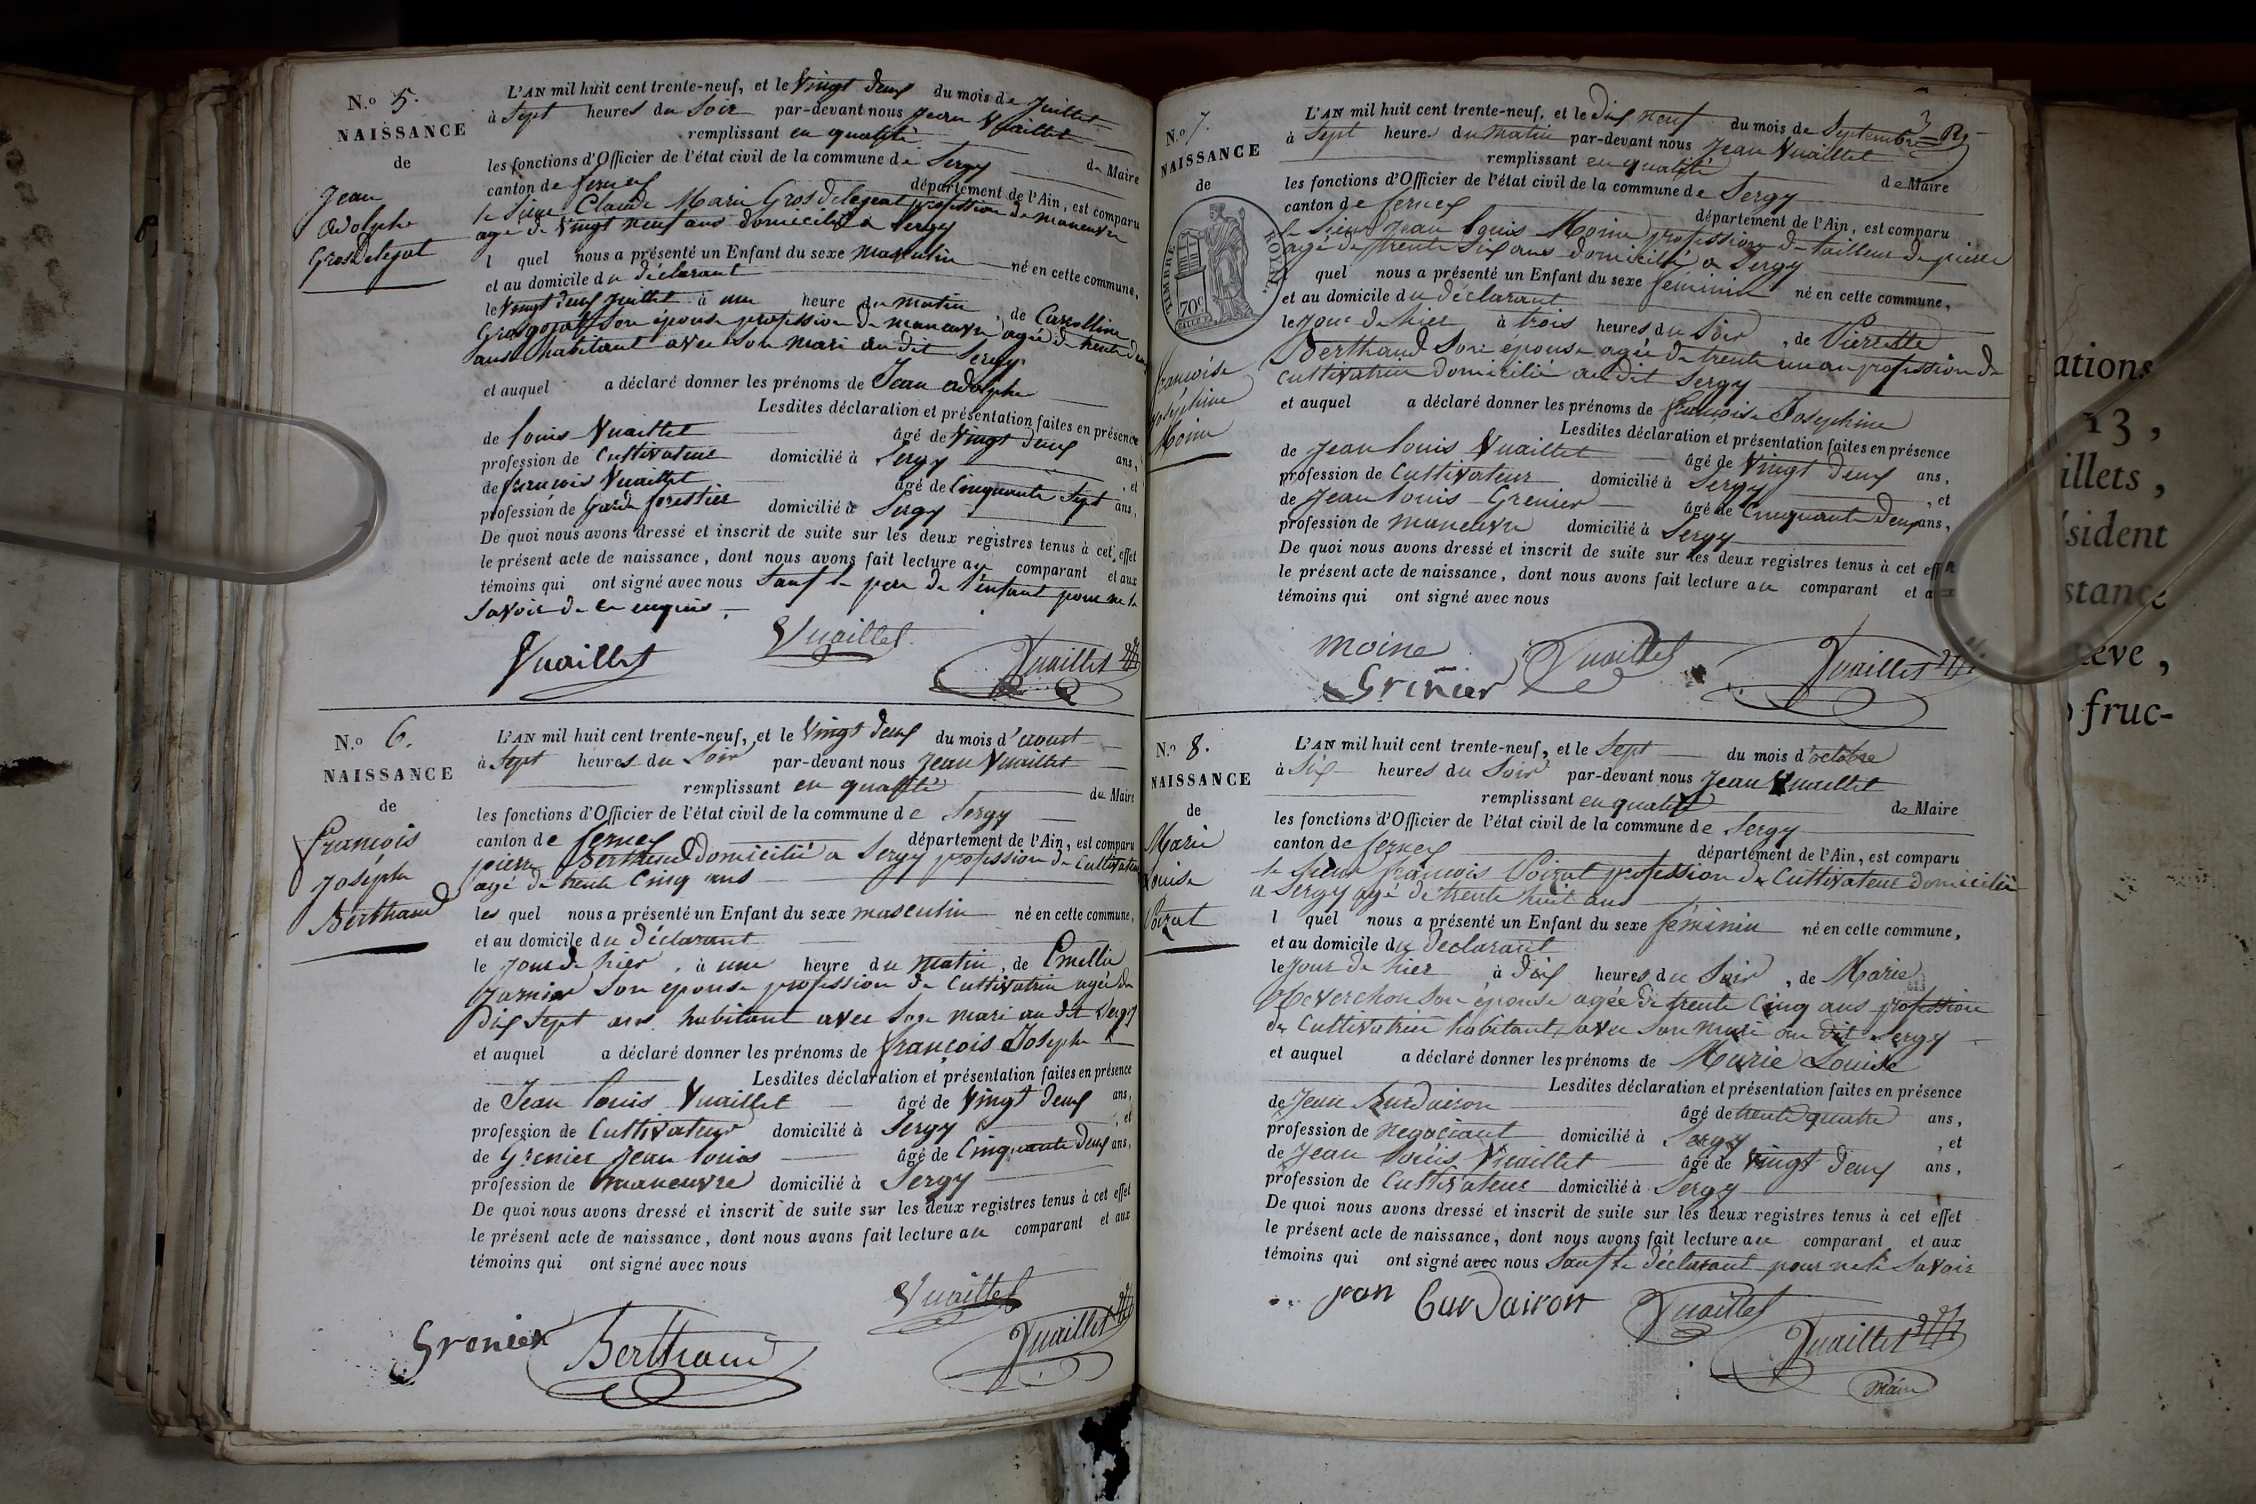 N.o 5.
NAISSANCE
de
Jean
adolphe
GrosDelegat
L'AN mil huit cent trente-neuf, et le Vingt deux du mois de Juillet
à Sept heures du Soir par-devant nous Jean Vuaillet
remplissant en qualité de Maire
les fonctions d'Officier de l'état civil de la commune de Sergy
canton de fernex département de l'Ain, est comparu
le Sieur Claude Marie Gros profession de maneuvre
agé de Vingt neuf ans domicilié a Sergy
l quel nous a présenté un Enfant du sexe masculin né en cette commune,
et au domicile du déclarant
le Vingt deux Juillet à une heure du matin, de Carolline
son épouse profession de maneuvre agée de trente deux
ans habitant avec son mari au dit Sergy
et auquel a déclaré donner les prénoms de Jean adolphe
Lesdites déclaration et présentation faites en présence
de louis Vuaillet âgé de Vingt deux ans,
profession de Cultivateur domicilié à Sergy, et
de francois Vuaillet âgé de Cinquante Sept ans,
profession de garde forestier domicilié à Sergy
De quoi nous avons dressé et inscrit de suite sur les deux registres tenus à cet effet
le présent acte de naissance, dont nous avons fait lecture au comparant et aux
témoins qui ont signé avec nous Sauf le père de l'enfant pour ne le
Savoir de ce enquis.
Vuaillet Vuaillet Vuaillet
N.o 6.
NAISSANCE
de
françois
Joséph
Berthaud
L'AN mil huit cent trente-neuf, et le Vingt deux du mois d'aoust
à Sept heures du Soir par-devant nous Jean Vuaillet
remplissant en qualité de Maire
les fonctions d'Officier de l'état civil de la commune de Sergy
canton de fernex département de l'Ain, est comparu
pierre Berthaud domicilié a Sergy profession de Cultivateur
agé de trente Cinq ans
les quel nous a présenté un Enfant du sexe masculin né en cette commune,
et au domicile du déclarant
le jour de hier, à une heure du matin, de Emellie
son épouse profession de Cultivatrice agée de
Dix Sept ans habitant avec Son mari au dit Sergy
et auquel a déclaré donner les prénoms de françois Joseph
Lesdites déclaration et présentation faites en présence
de Jean louis Vuaillet âgé de Vingt deux ans,
profession de Cultivateur domicilié à Sergy, et
de Grenier Jean louis âgé de Cinquante deux ans,
profession de maneuvre domicilié à Sergy
De quoi nous avons dressé et inscrit de suite sur les deux registres tenus à cet effet
le présent acte de naissance, dont nous avons fait lecture au comparant et aux
témoins qui ont signé avec nous
Vuaillet
Grenier Berthaud Vuaillet
N.o 7.
NAISSANCE
de
TIMBRE ROYAL
70c
françoise
joséphine
Moine
L'AN mil huit cent trente-neuf, et le dix neuf du mois de Septembre
à Sept heures du matin par-devant nous Jean Vuaillet
remplissant en qualité de Maire
les fonctions d'Officier de l'état civil de la commune de Sergy
canton de fernex département de l'Ain, est comparu
le Sieur Jean louis Moine profession de tailleur de pierre
agé de trente Six ans domicilié a Sergy
quel nous a présenté un Enfant du sexe féminin né en cette commune,
et au domicile du déclarant
le jour de hier à trois heures du Soir, de Pierrette
Berthaud Son épouse agée de trente un an profession de
cultivatrice domicilié au dit Sergy
et auquel a déclaré donner les prénoms de françoise Josephine
Lesdites déclaration et présentation faites en présence
de Jean louis Vuaillet âgé de Vingt deux ans,
profession de Cultivateur domicilié à Sergy, et
de Jean louis Grenier âgé de Cinquante deux ans,
profession de maneuvre domicilié à Sergy
De quoi nous avons dressé et inscrit de suite sur les deux registres tenus à cet effet
le présent acte de naissance, dont nous avons fait lecture au comparant et aux
témoins qui ont signé avec nous
moine Vuaillet Vuaillet
Grenier
N.o 8.
NAISSANCE
de
Marie
Louise
Poizat
L'AN mil huit cent trente-neuf, et le Sept du mois d'octobre
à Six heures du Soir par-devant nous Jean Vuaillet
remplissant en qualité de Maire
les fonctions d'Officier de l'état civil de la commune de Sergy
canton de fernex département de l'Ain, est comparu
le Sieur françois Poizat profession de Cultivateur domicilié
a Sergy agé de trente huit ans
l quel nous a présenté un Enfant du sexe féminin né en cette commune,
et au domicile du declarant
le jour de hier à dix heures du Soir, de Marie
Son épouse agée de trente Cinq ans profession
de Cultivatrice habitant avec son mari au dit Sergy
et auquel a déclaré donner les prénoms de Marie Louise
Lesdites déclaration et présentation faites en présence
de Jean Burdairon âgé de trente quatre ans,
profession de negociant domicilié à Sergy, et
de Jean louis Vuaillet âgé de Vingt deux ans,
profession de Cultivateur domicilié à Sergy
De quoi nous avons dressé et inscrit de suite sur les deux registres tenus à cet effet
le présent acte de naissance, dont nous avons fait lecture au comparant et aux
témoins qui ont signé avec nous Sauf le déclarant pour ne le Savoir
jean Burdairon Vuaillet
Vuaillet
Maire
ations
13,
illets,
sident
stance
ève,
fruc-